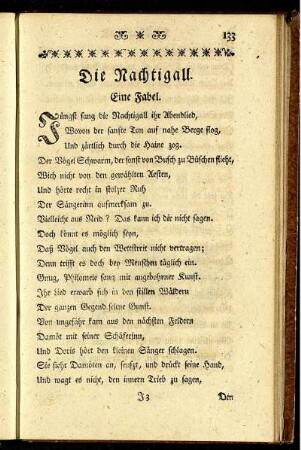 133
Die Nachtigall.
Eine Fabel.
Jüngst sang die Nachtigall ihr Abendlied,
Wovon der sanfte Ton auf nahe Berge flog,
Und zärtlich durch die Haine zog.
Der Vögel Schwarm, der sonst von Busch zu Büschen flieht,
Wich nicht von den gewählten Aesten,
Und hörte recht in stolzer Ruh
Der Sängerinn aufmerksam zu.
Vielleicht aus Neid? Das kann ich dir nicht sagen.
Doch könnt es möglich seyn,
Daß Vögel auch den Wettstreit nicht vertragen;
Denn trifft es doch bey Menschen täglich ein.
Gnug, Philomele sang mit angebohrner Kunst.
Ihr Lied erwarb sich in den stillen Wäldern
Der ganzen Gegend seine Gunst.
Von ungefähr kam aus den nächsten Feldern
Damöt mit seiner Schäferinn,
Und Doris hört den kleinen Sänger schlagen.
Sie sieht Damöten an, seufzt, und drückt seine Hand,
Und wagt es nicht, den innern Trieb zu sagen,
J3 Den